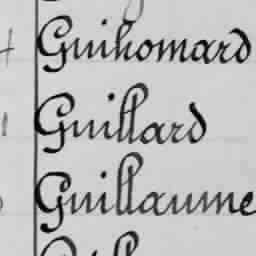 Guihomard
Guillard
Guillaume